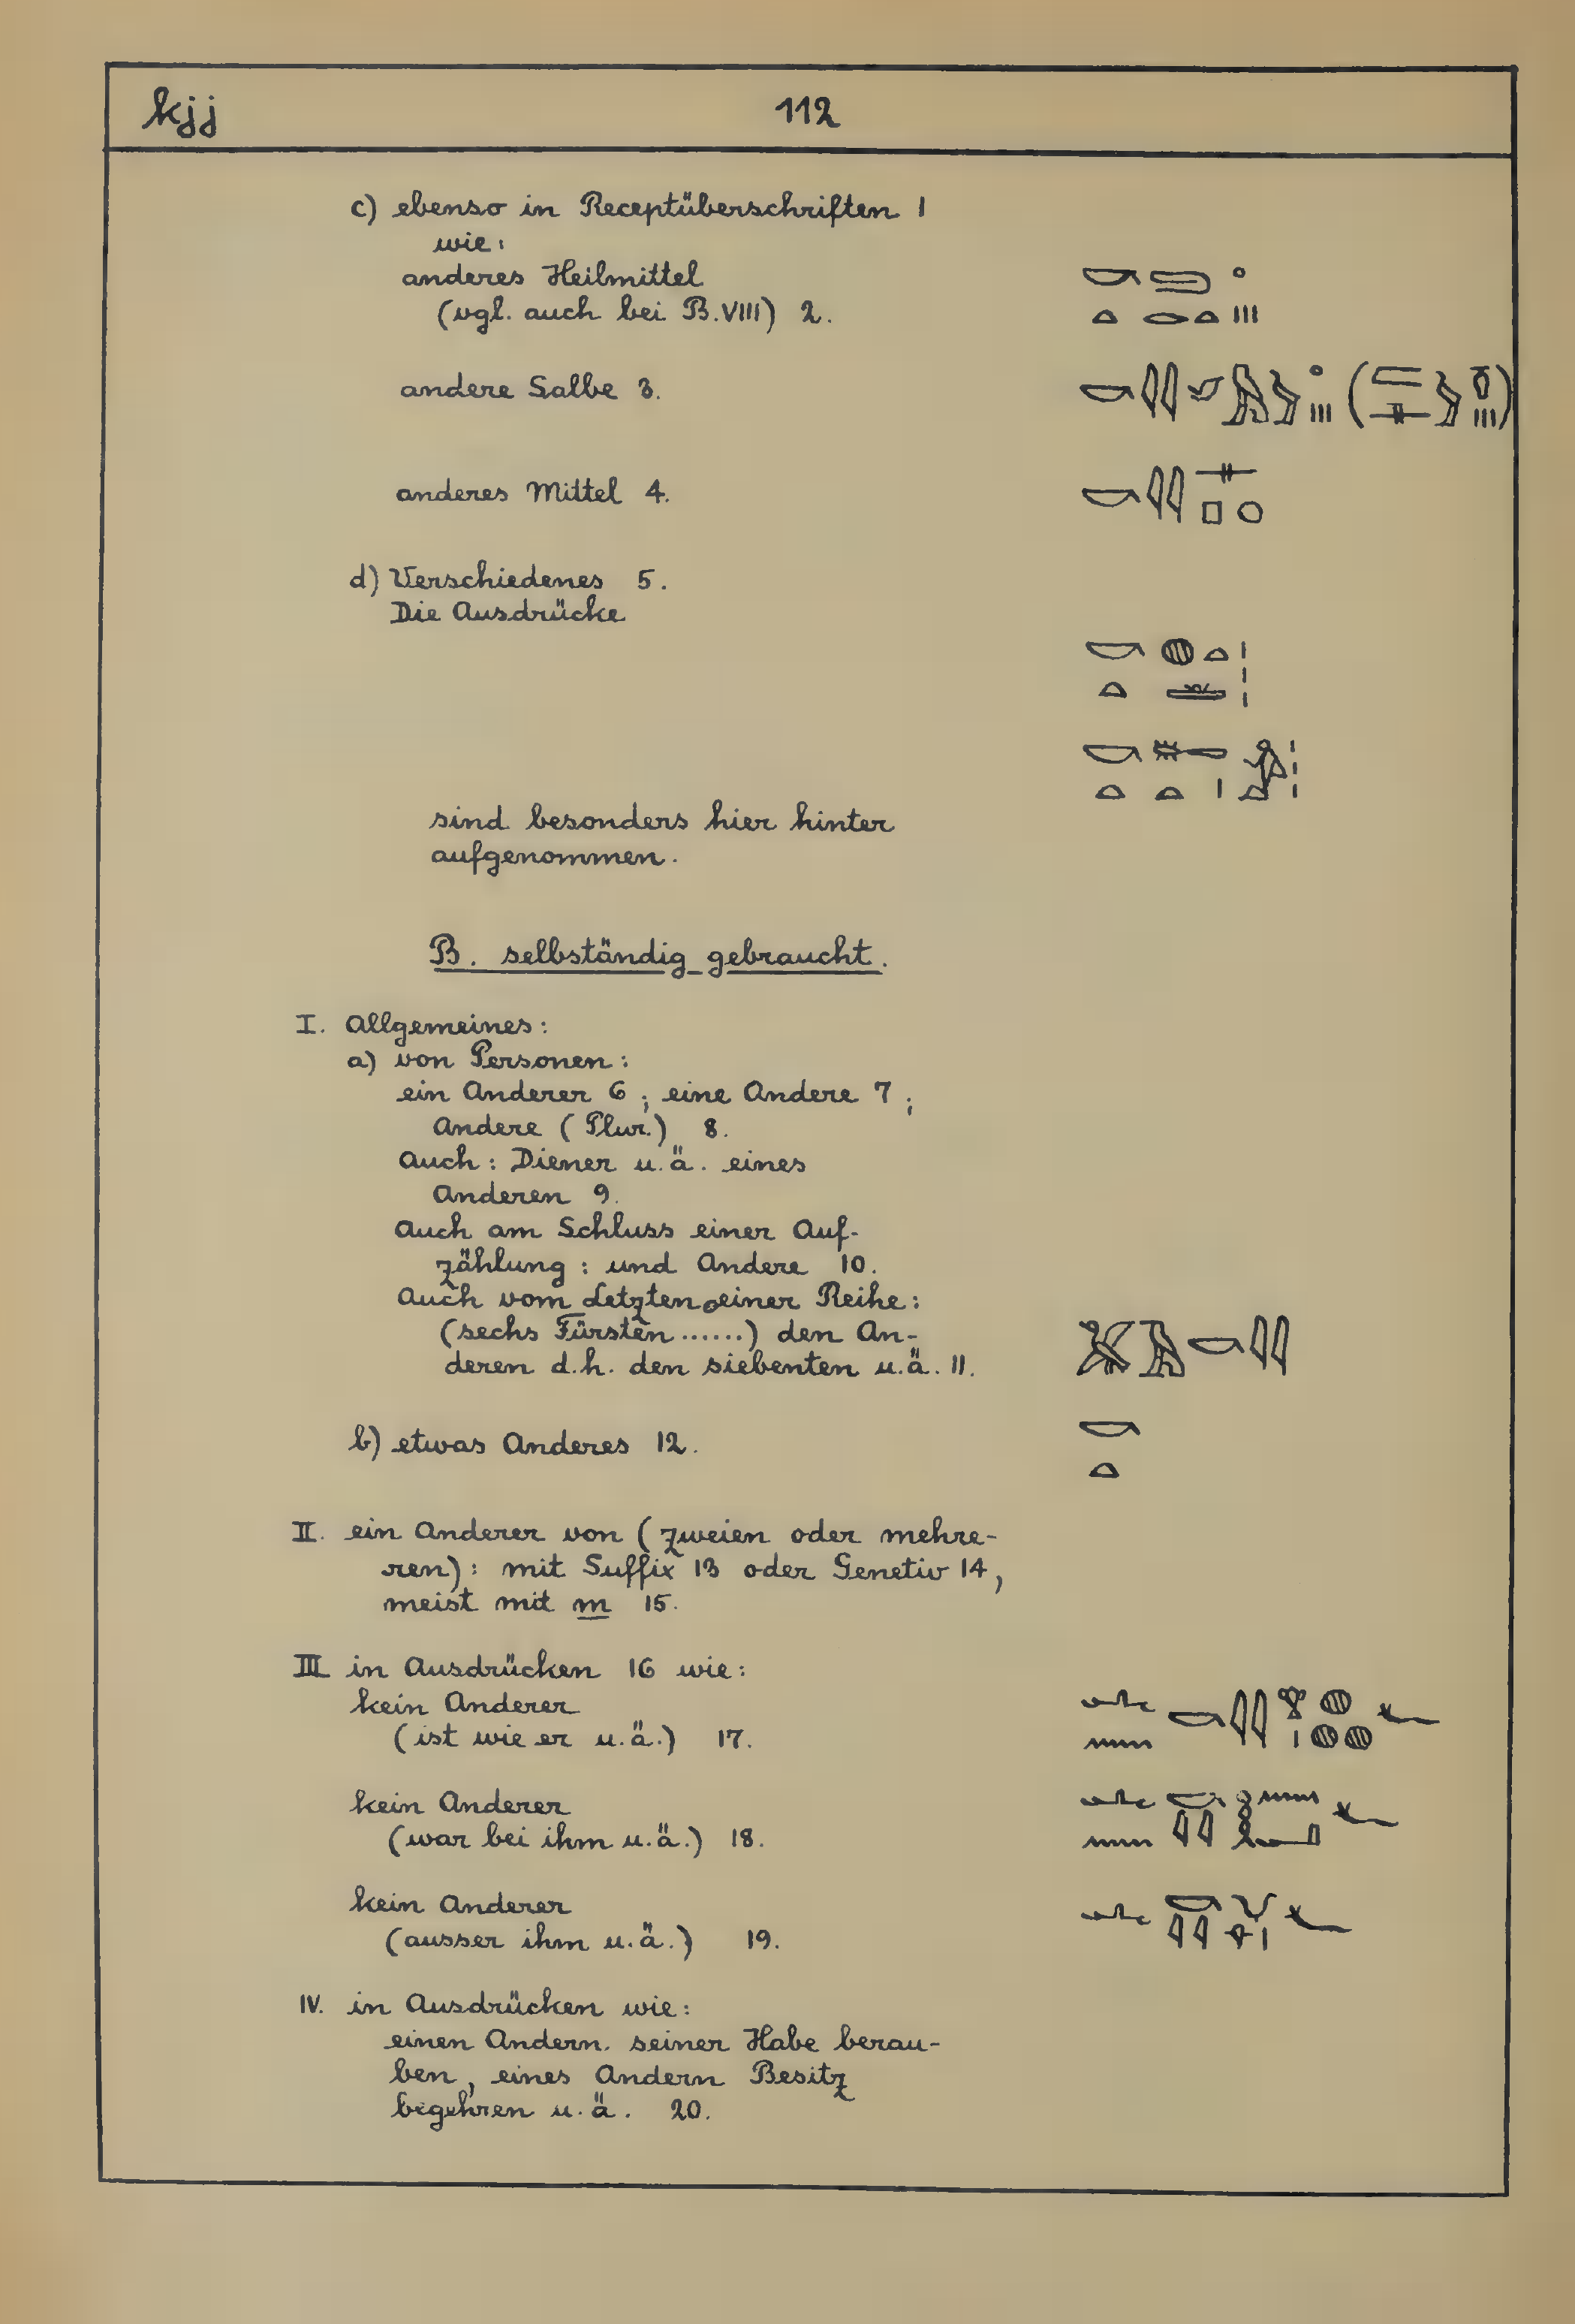 kjj 112
c) ebenso in Receptüberschriften 1
wie:
anderes Heilmittel
(vgl. auch bei B.VIII) 2.
andere Salbe 3.
anderes Mittel 4.
d) Verschiedenes 5.
Die Ausdrücke
sind besonders hier hinter
aufgenommen.
B. selbständig gebraucht.
I. Allgemeines:
a) von Personen:
ein Anderer 6; eine Andere 7;
Andere (Plur.) 8.
Auch: Diener u.ä. eines
Anderen 9.
Auch am Schluss einer Auf-
zählung: und Andere 10.
Auch vom Letzten einer Reihe:
(sechs Fürsten ......) den An-
deren d.h. den siebenten u.ä. 11.
b) etwas Anderes 12.
II. ein Anderer von (zweien oder mehre-
ren): mit Suffix 13 oder Genetiv 14,
meist mit m 15.
III in Ausdrücken 16 wie:
kein Anderer
(ist wie er u.ä.) 17.
kein Anderer
(war bei ihm u.ä.) 18.
kein Anderer
(ausser ihm u.ä.) 19.
IV. in Ausdrücken wie:
einen Andern seiner Habe berau-
ben, eines Andern Besitz
begehren u.ä. 20.